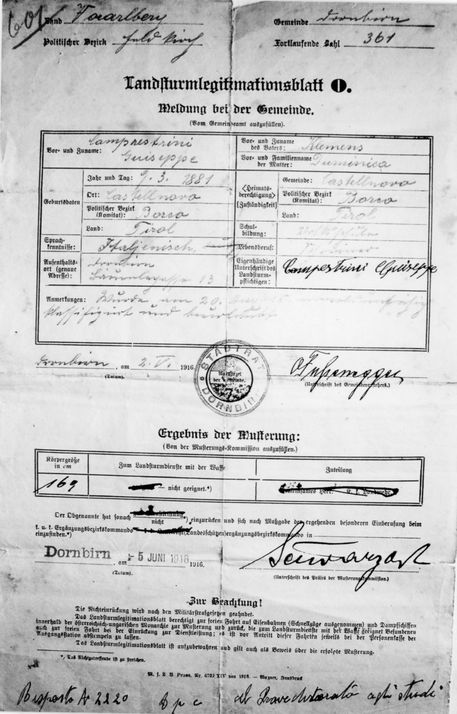 601
Land Vorarlberg Gemeinde Dornbirn
Politischer Bezirk Feldkirch Fortlaufende Zahl 361
Landsturmlegitimationsblatt
Meldung bei der Gemeinde.
(Vom Gemeindeamt auszufüllen).
Vor- und Zuname: Camprestrini Guiseppe
Vor- und Zuname des Vaters: Klemens
Vor- und Familienname der Mutter: Dumenica
Geburtsdaten
Jahr und Tag: 9. 3. 1881
Ort: Castellnovo
Politischer Bezirk (Komitat): Borco
Land: Tirol
Heimatsberechtigung (Zuständigkeit)
Gemeinde: Castellnovo
Politischer Bezirk (Komitat): Borco
Land: Tirol
Sprachkenntnisse: Italjenisch
Schulbildung:
Lebensberuf:
Aufenthaltsort (genaue Adresse): Dornbirn
13
Eigenhändige Unterschrift des Landsturmpflichtigen: Campestrini Giuseppe
Anmerkungen: Wurde am 20.
klassifiziert und beurlaubt
Dornbirn, am 2. VI. 1916
(Datum).
STADTRAT DORNBIRN
(Unterschrift des Gemeindevorstehers.)
Ergebnis der Musterung:
(Von der Musterungs-Kommission auszufüllen.)
Körpergröße in cm
Zum Landsturmdienste mit der Waffe
Zuteilung
169
nicht geeignet.*)
Der Obgenannte hat sonach
nicht *) einzurücken und sich nach Maßgabe der ergehenden besonderen Einberufung beim
k. u. k. Ergänzungsbezirkskommando Landesschützenergänzungsbezirkskommando in
einzufinden.*)
Dornbirn, am 5 JUNI 1916 1916.
(Datum).
(Unterschrift des Leiters der Musterungskommission.)
Zur Beachtung!
Die Nichteinrückung wird nach den Militärstrafgesetzen geahndet.
Das Landsturmlegitimationsblatt berechtigt zur freien Fahrt auf Eisenbahnen (Schnellzüge ausgenommen) und Dampfschiffen
innerhalb der österreichisch-ungarischen Monarchie zur Musterung und zurück, die zum Landsturmdienste mit der Waffe geeignet Befundenen
auch zur freien Fahrt bei der Einrückung zur Dienstleistung; es ist vor Antritt dieser Fahrt jeweils bei der Personenkasse der
Ausgangsstation abstempeln zu lassen.
Das Landsturmlegitimationsblatt ist aufzubewahren und gilt auch als Beweis über die erfolgte Musterung.
*) Das Nichtzutreffende ist zu streichen.
Risposta N 2220